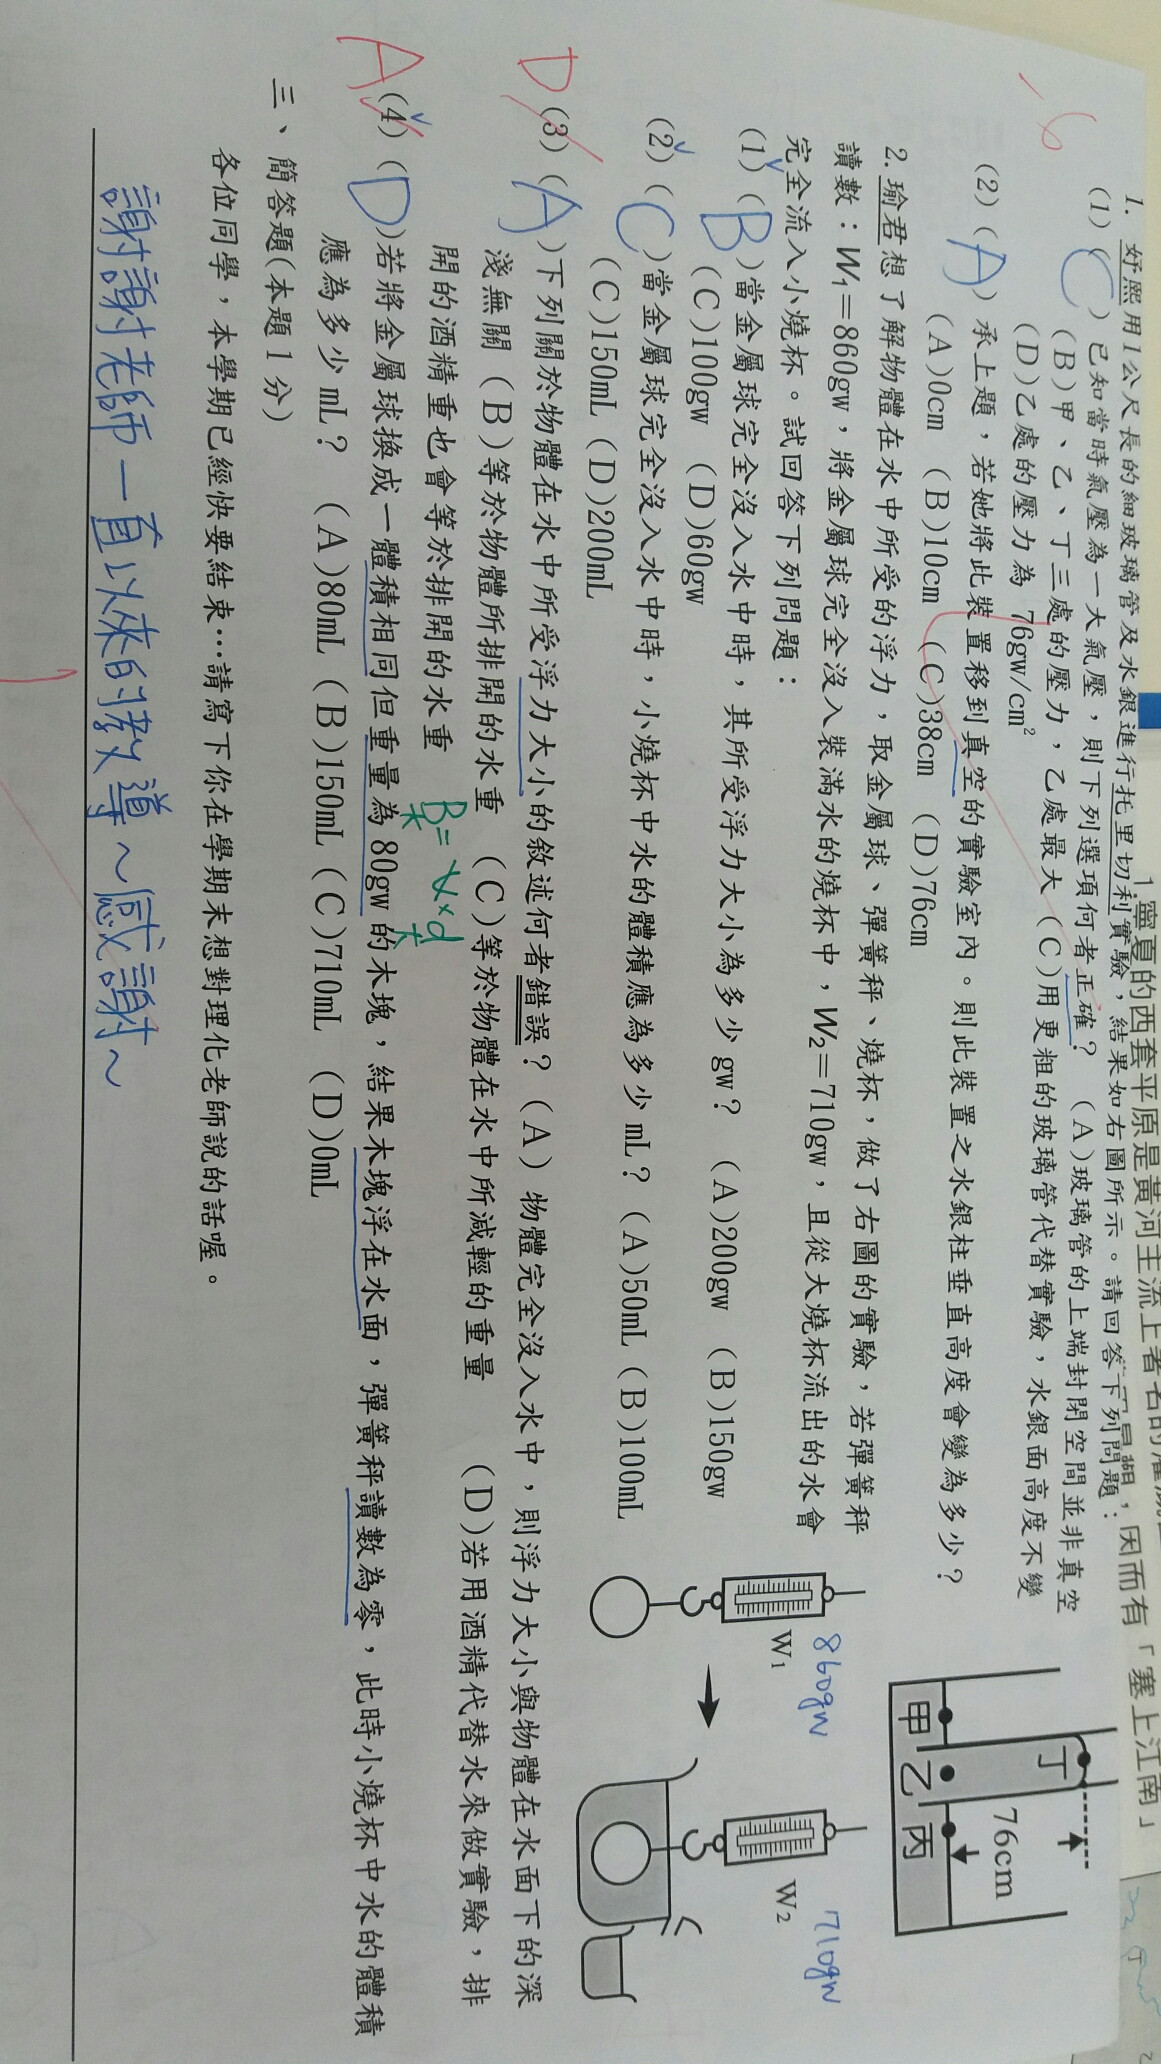 寧夏的西套平原是黃河主流上著名的灌
因而有「塞上江南」
-6
1. 妤熙用1公尺長的細玻璃管及水銀進行托里切利實驗，結果如右圖所示。請回答下列問題：
(1)(C)已知當時氣壓為一大氣壓，則下列選項何者正確？(A)玻璃管的上端封閉空間並非真空
(B)甲、乙、丁三處的壓力，乙處最大 (C)用更粗的玻璃管代替實驗，水銀面高度不變
(D)乙處的壓力為 76gw/cm²
(2)(A) 承上題，若她將此裝置移到真空的實驗室內。則此裝置之水銀柱垂直高度會變為多少？
(A)0cm (B)10cm (C)38cm (D)76cm
丁
76cm
甲 乙 丙
2. 瑜君想了解物體在水中所受的浮力，取金屬球、彈簧秤、燒杯，做了右圖的實驗，若彈簧秤
讀數：W₁＝860gw，將金屬球完全沒入裝滿水的燒杯中，W₂＝710gw，且從大燒杯流出的水會
完全流入小燒杯。試回答下列問題：
860gw
W₁
710gw
W₂
(1)(B)當金屬球完全沒入水中時，其所受浮力大小為多少gw？ (A)200gw (B)150gw
(C)100gw (D)60gw
(2)(C)當金屬球完全沒入水中時，小燒杯中水的體積應為多少mL？(A)50mL (B)100mL
(C)150mL (D)200mL
D (3)(A)下列關於物體在水中所受浮力大小的敘述何者錯誤？(A) 物體完全沒入水中，則浮力大小與物體在水面下的深
淺無關 (B)等於物體所排開的水重 (C)等於物體在水中所減輕的重量 (D)若用酒精代替水來做實驗，排
開的酒精重也會等於排開的水重
B=V×d
A (4)(D)若將金屬球換成一體積相同但重量為80gw的木塊，結果木塊浮在水面，彈簧秤讀數為零，此時小燒杯中水的體積
應為多少mL？ (A)80mL (B)150mL (C)710mL (D)0mL
三、簡答題(本題1分)
各位同學，本學期已經快要結束…請寫下你在學期末想對理化老師說的話喔。
謝謝老師一直以來的教導～感謝～